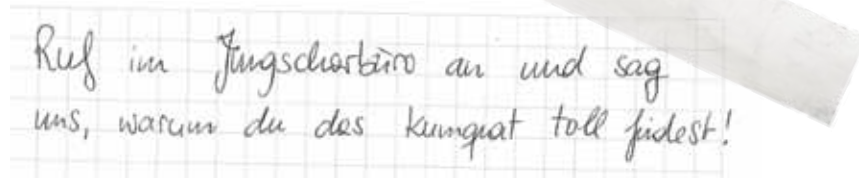 Ruf im Jungscharbüro an und sag
uns, warum du das kumquat toll findest!